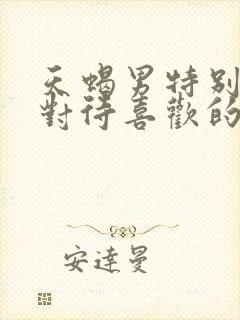 天蝎男特别
對待喜歡的
安達曼